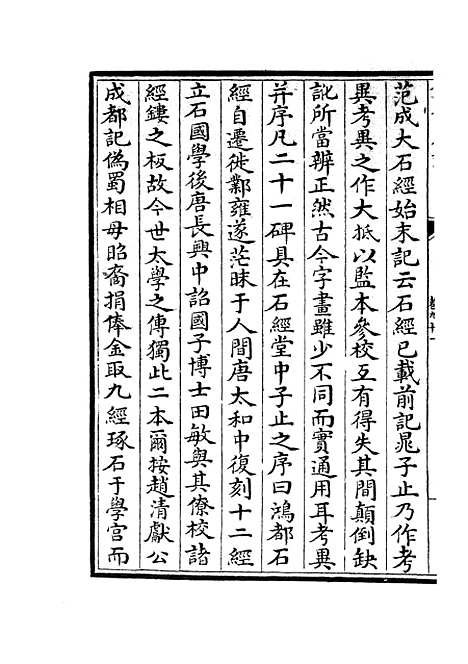 范成大石經始末記云石經已載前記晁子止乃作考
異考異之作大抵以監本參校互有得失其間顛倒缺
訛所當辨正然古今字畫雖少不同而實通用耳考異
并序凡二十一碑具在石經堂中子止之序曰鴻都石
經自遷徙鄴雍遂茫昧于人間唐太和中復刻十二經
立石國學後唐長興中詔國子博士田敏與其僚校諸
經鏤之板故今世太學之傳獨此二本爾按趙清獻公
成都記偽蜀相毋昭裔捐俸金取九經琢石于學宮而